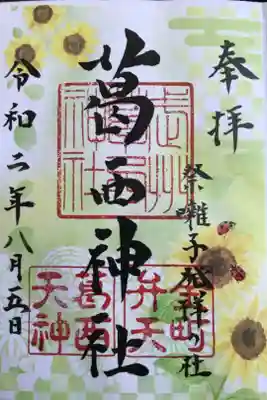 奉拝
祭囃子発祥の社
葛西神社
葛西神社
金町
弁天
葛西
天神
令和二年八月五日